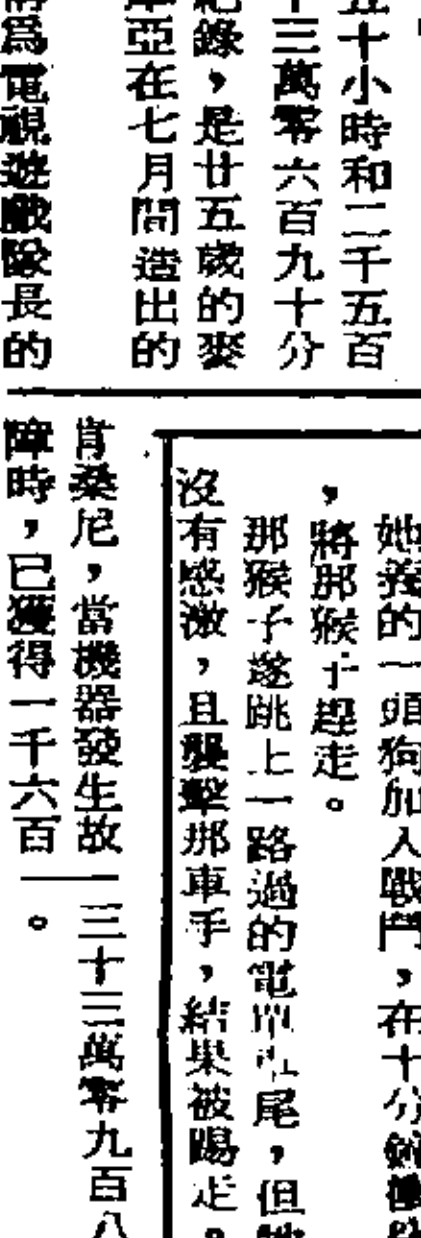 五十小時和二千五百
十三萬零六百九十分
紀錄，是廿五歲的麥
亞在七月間造出的
為電視遊戲隊長的
她養的一頭狗加入戰鬥，在十分鐘
，將那猴子趕走。
那猴子遂跳上一路過的電單車尾，但牠
沒有感激，且襲擊那車手，結果被踢走。
肯桑尼，當機器發生故
障時，已獲得一千六百
三十三萬零九百八
。